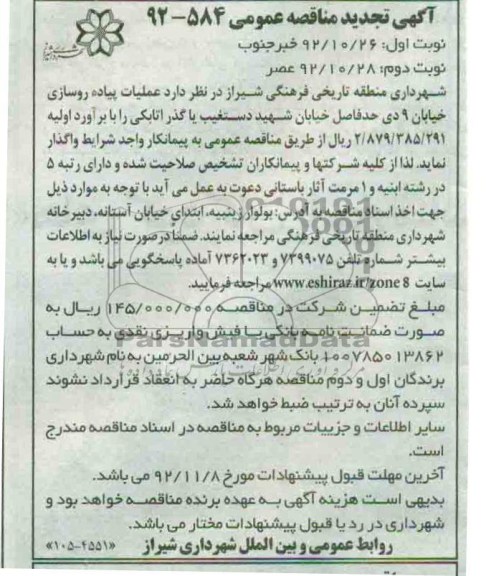 آگهی تجدید مناقصه عمومی ۵۸۴-۹۲
نوبت اول: ۹۲/۱۰/۲۶ خبرجنوب
نوبت دوم: ۹۲/۱۰/۲۸ عصر
شهرداری منطقه تاریخی فرهنگی شیراز در نظر دارد عملیات پیاده روسازی
خیابان ۹ دی حدفاصل خیابان شهید دستغیب یا گذر اتابکی را با برآورد اولیه
۲/۸۷۹/۳۸۵/۲۹۱ ریال از طریق مناقصه عمومی به پیمانکار واجد شرایط واگذار
نماید. لذا از کلیه شرکتها و پیمانکاران تشخیص صلاحیت شده و دارای رتبه ۵
در رشته ابنیه و ۱ مرمت آثار باستانی دعوت به عمل می آید با توجه به موارد ذیل
جهت اخذ اسناد مناقصه به آدرس: بولوار زینبیه، ابتدای خیابان آستانه، دبیرخانه
شهرداری منطقه تاریخی فرهنگی مراجعه نمایند. ضمناً در صورت نیاز به اطلاعات
بیشتر شماره تلفن ۷۳۹۹۰۷۵ و ۷۳۶۲۰۲۳ آماده پاسخگویی می باشد و یا به
سایت www.eshiraz.ir/zone8 مراجعه فرمایید.
مبلغ تضمین شرکت در مناقصه ۱۴۵/۰۰۰/۰۰۰ ریال به
صورت ضمانت نامه بانکی یا فیش واریزی نقدی به حساب
۱۰۰۷۸۵۰۱۳۸۶۲ بانک شهر شعبه بین الحرمین به نام شهرداری
برندگان اول و دوم مناقصه هرگاه حاضر به انعقاد قرارداد نشوند
سپرده آنان به ترتیب ضبط خواهد شد.
سایر اطلاعات و جزییات مربوط به مناقصه در اسناد مناقصه مندرج
است.
آخرین مهلت قبول پیشنهادات مورخ ۹۲/۱۱/۸ می باشد.
بدیهی است هزینه آگهی به عهده برنده مناقصه خواهد بود و
شهرداری در رد یا قبول پیشنهادات مختار می باشد.
روابط عمومی و بین الملل شهرداری شیراز «۱۰۵-۴۵۵۱»
ParsNamadData